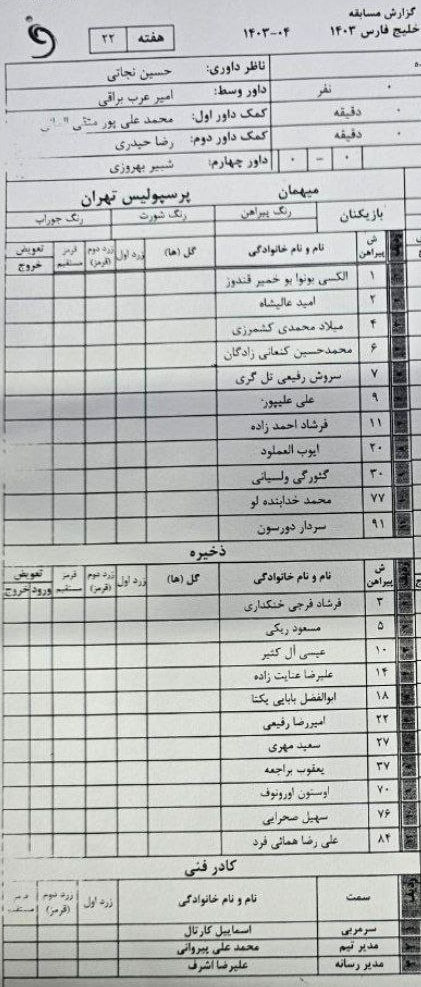 گزارش مسابقه
خلیج فارس ۱۴۰۳ ۱۴۰۳-۰۴
هفته ۲۲
ناظر داوری: حسین نجاتی
نفر داور وسط: امیر عرب براقی
دقیقه کمک داور اول: محمد علی پور
دقیقه کمک داور دوم: رضا حیدری
۰ – ۰ داور چهارم: شبیر بهروزی
میهمان پرسپولیس تهران
بازیکنان رنگ پیراهن رنگ شورت رنگ جوراب
ردیف ش پیراهن نام و نام خانوادگی گل (ها) زرد اول زرد دوم (قرمز) قرمز مستقیم تعویض خروج
۱ الکسی بونوا بو خمیر قندوز
۲ امید عالیشاه
۴ میلاد محمدی کشمرزی
۶ محمدحسین کنعانی زادگان
۷ سروش رفیعی تل گری
۹ علی علیپور
۱۱ فرشاد احمد زاده
۲۰ ایوب العملود
۳۰ گئورگی ولسیانی
۷۷ محمد خدابنده لو
۹۱ سردار دورسون
ذخیره
ردیف ش پیراهن نام و نام خانوادگی گل (ها) زرد اول زرد دوم (قرمز) قرمز مستقیم تعویض ورود خروج
۳ فرشاد فرجی خنکداری
۵ مسعود ریگی
۱۰ عیسی آل کثیر
۱۴ علیرضا عنایت زاده
۱۸ ابوالفضل بابایی یکتا
۲۲ امیررضا رفیعی
۲۷ سعید مهری
۳۷ یعقوب براجعه
۷۰ اوستون اورونوف
۷۶ سهیل صحرایی
۸۴ علی رضا همائی فرد
کادر فنی
ردیف سمت نام و نام خانوادگی زرد اول زرد دوم (قرمز) قرمز مستقیم
سرمربی اسماییل کارتال
مدیر تیم محمد علی پیروانی
مدیر رسانه علیرضا اشرف